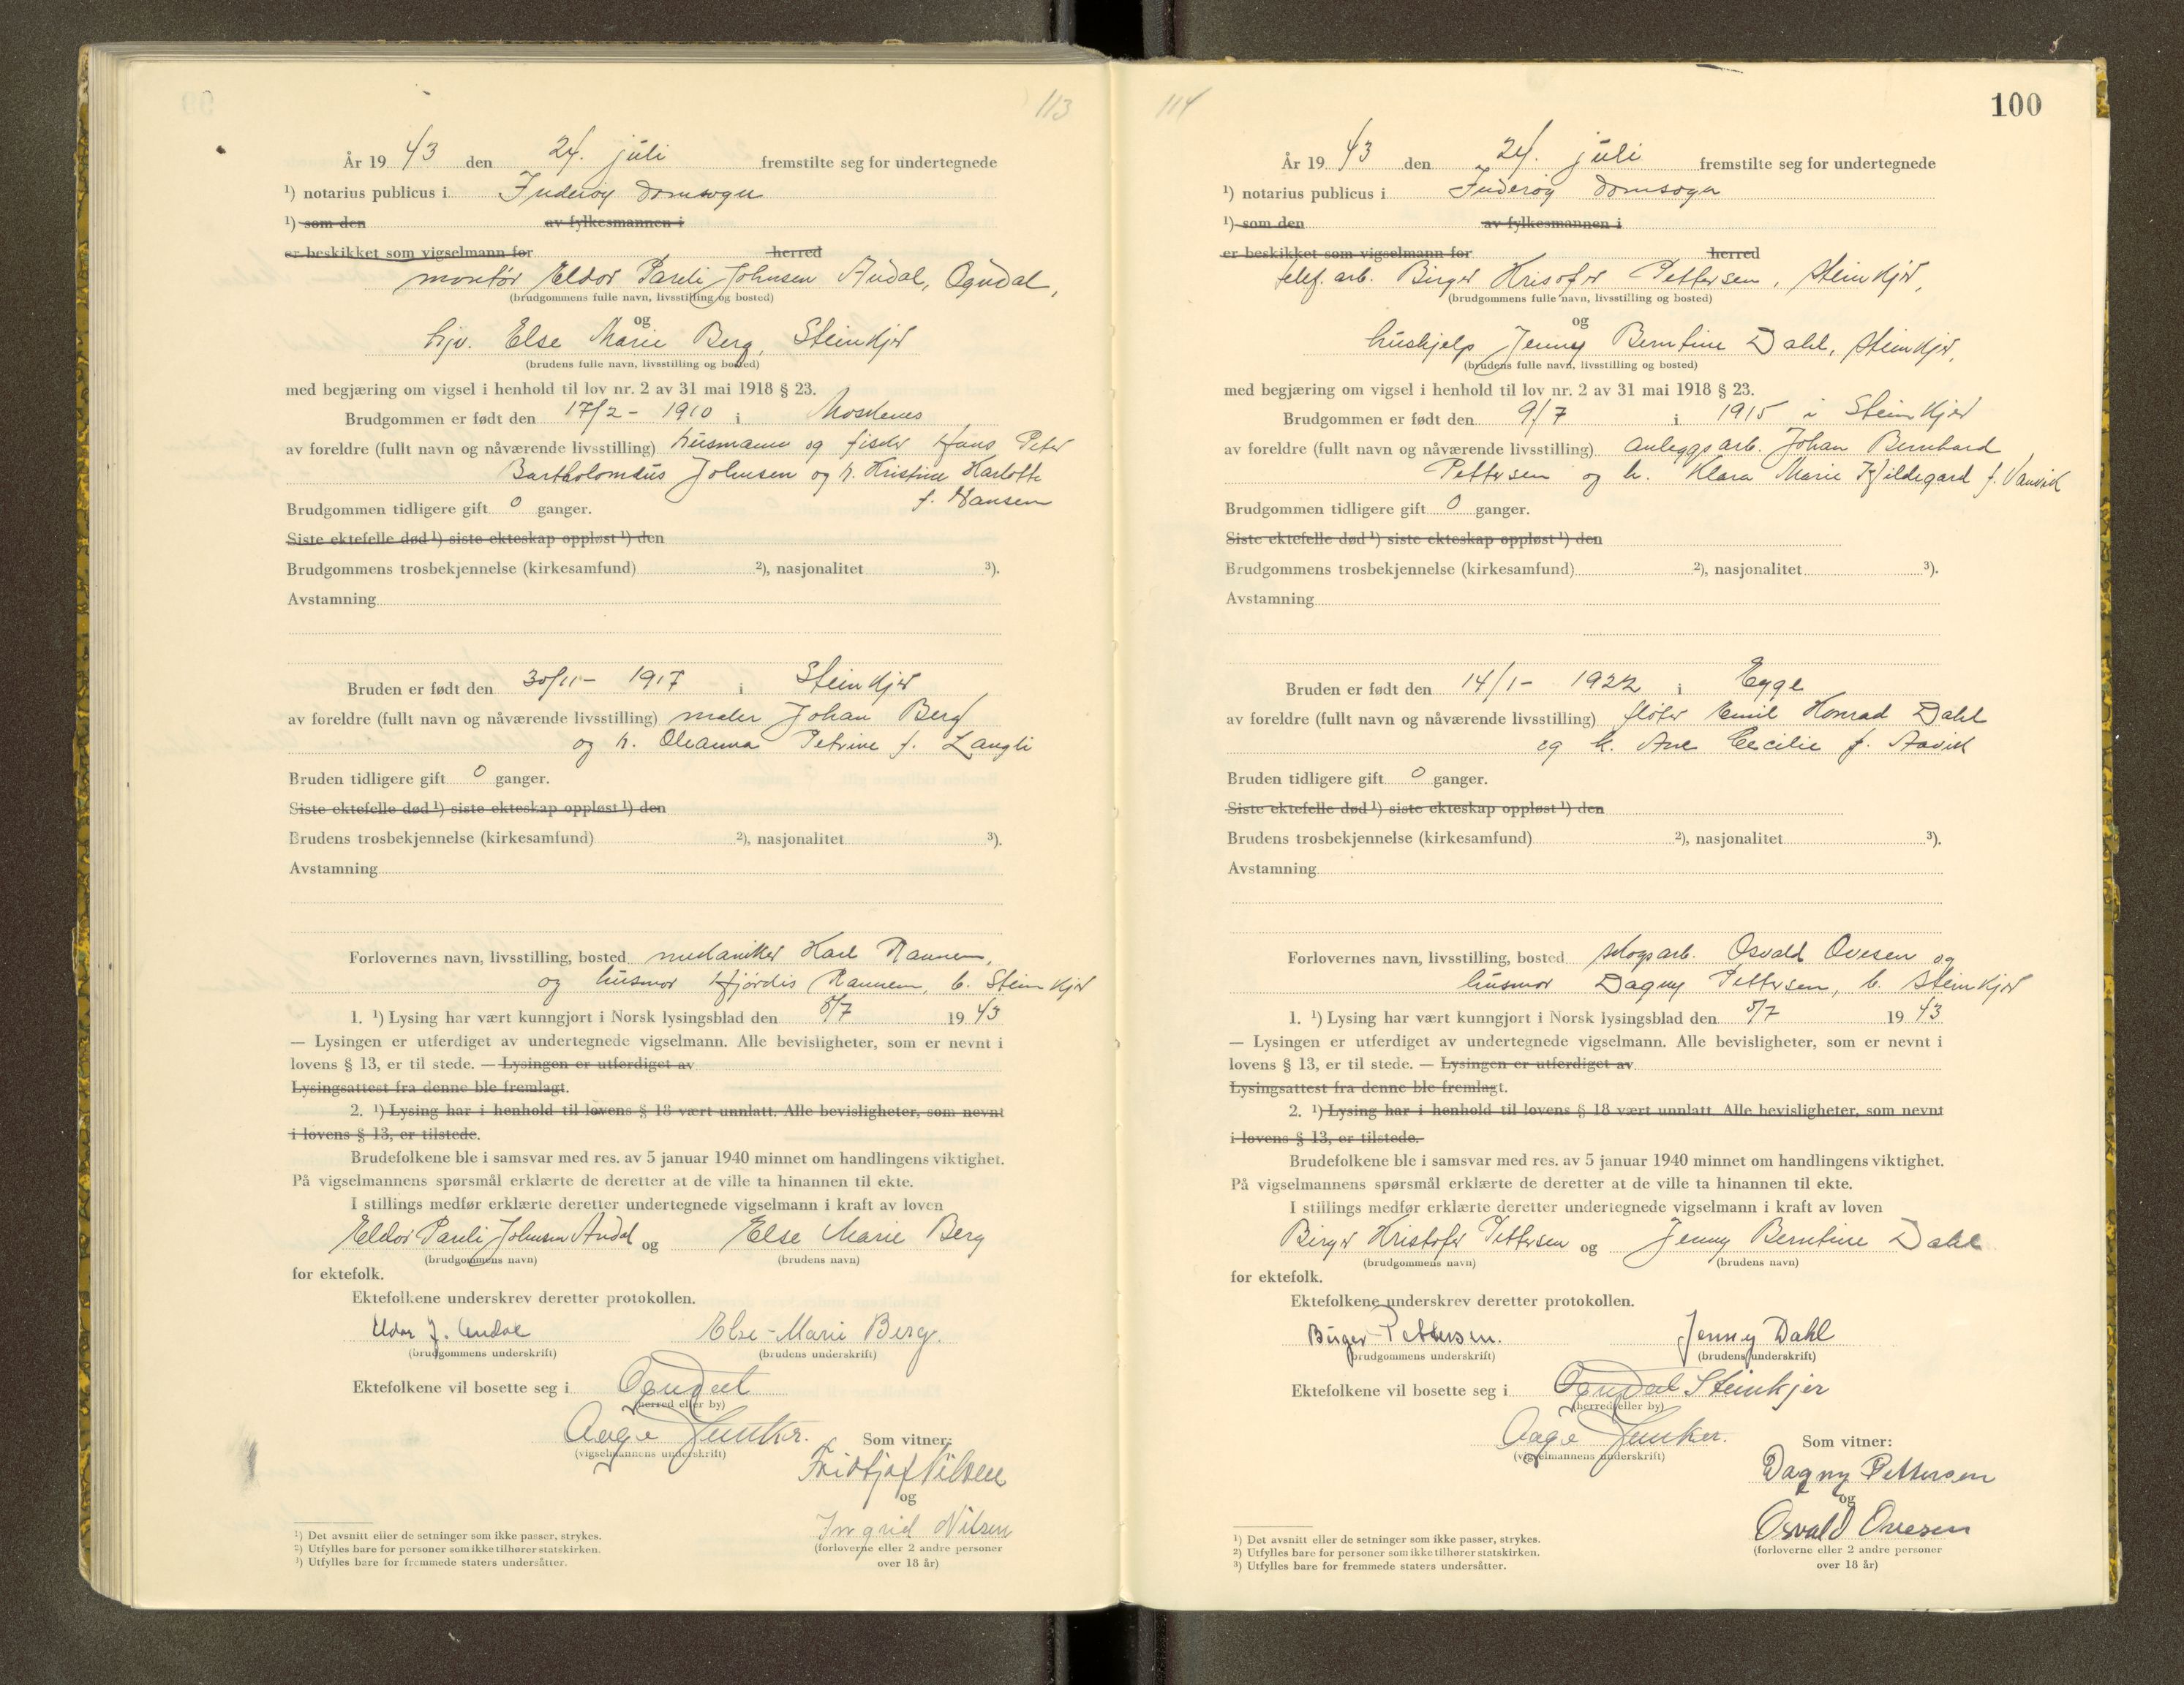 113
År 19 43 den 24. juli fremstilte seg for undertegnede
¹) notarius publicus i Inderøy domsogn
¹) som den av fylkesmannen i
er beskikket som vigselmann for herred
montør Eldor Pauli Johnsen Andal, Ogndal,
(brudgommens fulle navn, livsstilling og bosted)
og
hjv. Else Marie Berg, Steinkjer
(brudens fulle navn, livsstilling og bosted)
med begjæring om vigsel i henhold til lov nr. 2 av 31 mai 1918 § 23.
Brudgommen er født den 17/2 - 1910 i Moskenes
av foreldre (fullt navn og nåværende livsstilling) husmann og fisker Hans Peter
Bartholomäus Johnsen og h. Kristine Karlotte
f. Hansen
Brudgommen tidligere gift 0 ganger.
Siste ektefelle død ¹) siste ekteskap oppløst ¹) den
Brudgommens trosbekjennelse (kirkesamfund) ²), nasjonalitet ³).
Avstamning
Bruden er født den 30/11 - 1917 i Steinkjer
av foreldre (fullt navn og nåværende livsstilling) maler Johan Berg
og h. Oleanna Petrine f. Langli
Bruden tidligere gift 0 ganger.
Siste ektefelle død ¹) siste ekteskap oppløst ¹) den
Brudens trosbekjennelse (kirkesamfund) ²), nasjonalitet ³).
Avstamning
Forlovernes navn, livsstilling, bosted mekaniker Karl Rannem,
og husmor Hjördis Rannem, b. Steinkjer
1. ¹) Lysing har vært kunngjort i Norsk lysingsblad den 8/7 19 43
— Lysingen er utferdiget av undertegnede vigselmann. Alle bevisligheter, som er nevnt i
lovens § 13, er til stede. — Lysingen er utferdiget av
Lysingsattest fra denne ble fremlagt.
2. ¹) Lysing har i henhold til lovens § 18 vært unnlatt. Alle bevisligheter, som nevnt
i lovens § 13, er tilstede.
Brudefolkene ble i samsvar med res. av 5 januar 1940 minnet om handlingens viktighet.
På vigselmannens spørsmål erklærte de deretter at de ville ta hinannen til ekte.
I stillings medfør erklærte deretter undertegnede vigselmann i kraft av loven
Eldor Pauli Johnsen Andal og Else Marie Berg
(brudgommens navn) (brudens navn)
for ektefolk.
Ektefolkene underskrev deretter protokollen.
Eldor J. Andal Else-Marie Berg.
(brudgommens underskrift) (brudens underskrift)
Ektefolkene vil bosette seg i Ogndal
(herred eller by)
Aage Junker.
(vigselmannens underskrift)
Som vitner:
Fridtjof Nilsen
og
Ingrid Nilsen
(forloverne eller 2 andre personer
over 18 år)
¹) Det avsnitt eller de setninger som ikke passer, strykes.
²) Utfylles bare for personer som ikke tilhører statskirken.
³) Utfylles bare for fremmede staters undersåtter.
114
100
År 19 43 den 24. juli fremstilte seg for undertegnede
¹) notarius publicus i Inderøy domsogn
¹) som den av fylkesmannen i
er beskikket som vigselmann for herred
telef. arb. Birger Krisofer Pettersen, Steinkjer,
(brudgommens fulle navn, livsstilling og bosted)
og
hushjelp Jenny Berntine Dahl, Steinkjer,
(brudens fulle navn, livsstilling og bosted)
med begjæring om vigsel i henhold til lov nr. 2 av 31 mai 1918 § 23.
Brudgommen er født den 9/7 i 1915 i Steinkjer
av foreldre (fullt navn og nåværende livsstilling) anleggsarb. Johan Bernhard
Pettersen og h. Klara Marie Hildegard f. Vanvik
Brudgommen tidligere gift 0 ganger.
Siste ektefelle død ¹) siste ekteskap oppløst ¹) den
Brudgommens trosbekjennelse (kirkesamfund) ²), nasjonalitet ³).
Avstamning
Bruden er født den 14/1 - 1922 i Egge
av foreldre (fullt navn og nåværende livsstilling) fløter Emil Konrad Dahl
og h. Ane Cecilie f. Aavik
Bruden tidligere gift 0 ganger.
Siste ektefelle død ¹) siste ekteskap oppløst ¹) den
Brudens trosbekjennelse (kirkesamfund) ²), nasjonalitet ³).
Avstamning
Forlovernes navn, livsstilling, bosted skogsarb. Osvald Ovesen og
husmor Dagny Pettersen, b. Steinkjer
1. ¹) Lysing har vært kunngjort i Norsk lysingsblad den 8/7 19 43
— Lysingen er utferdiget av undertegnede vigselmann. Alle bevisligheter, som er nevnt i
lovens § 13, er til stede. — Lysingen er utferdiget av
Lysingsattest fra denne ble fremlagt.
2. ¹) Lysing har i henhold til lovens § 18 vært unnlatt Alle bevisligheter, som nevnt
i lovens § 13, er tilstede.
Brudefolkene ble i samsvar med res. av 5 januar 1940 minnet om handlingens viktighet.
På vigselmannens spørsmål erklærte de deretter at de ville ta hinannen til ekte.
I stillings medfør erklærte deretter undertegnede vigselmann i kraft av loven
Birger Kristofer Pettersen og Jenny Berntine Dahl
(brudgommens navn) (brudens navn)
for ektefolk.
Ektefolkene underskrev deretter protokollen.
Birger Pettersen. Jenny Dahl
(brudgommens underskrift) (brudens underskrift)
Ektefolkene vil bosette seg i Ogndal Steinkjer
(herred eller by)
Aage Junker.
(vigselmannens underskrift)
Som vitner:
Dagny Pettersen
og
Osvald Ovesen
(forloverne eller 2 andre personer
over 18 år)
¹) Det avsnitt eller de setninger som ikke passer, strykes.
²) Utfylles bare for personer som ikke tilhører statskirken.
³) Utfylles bare for fremmede staters undersåtter.